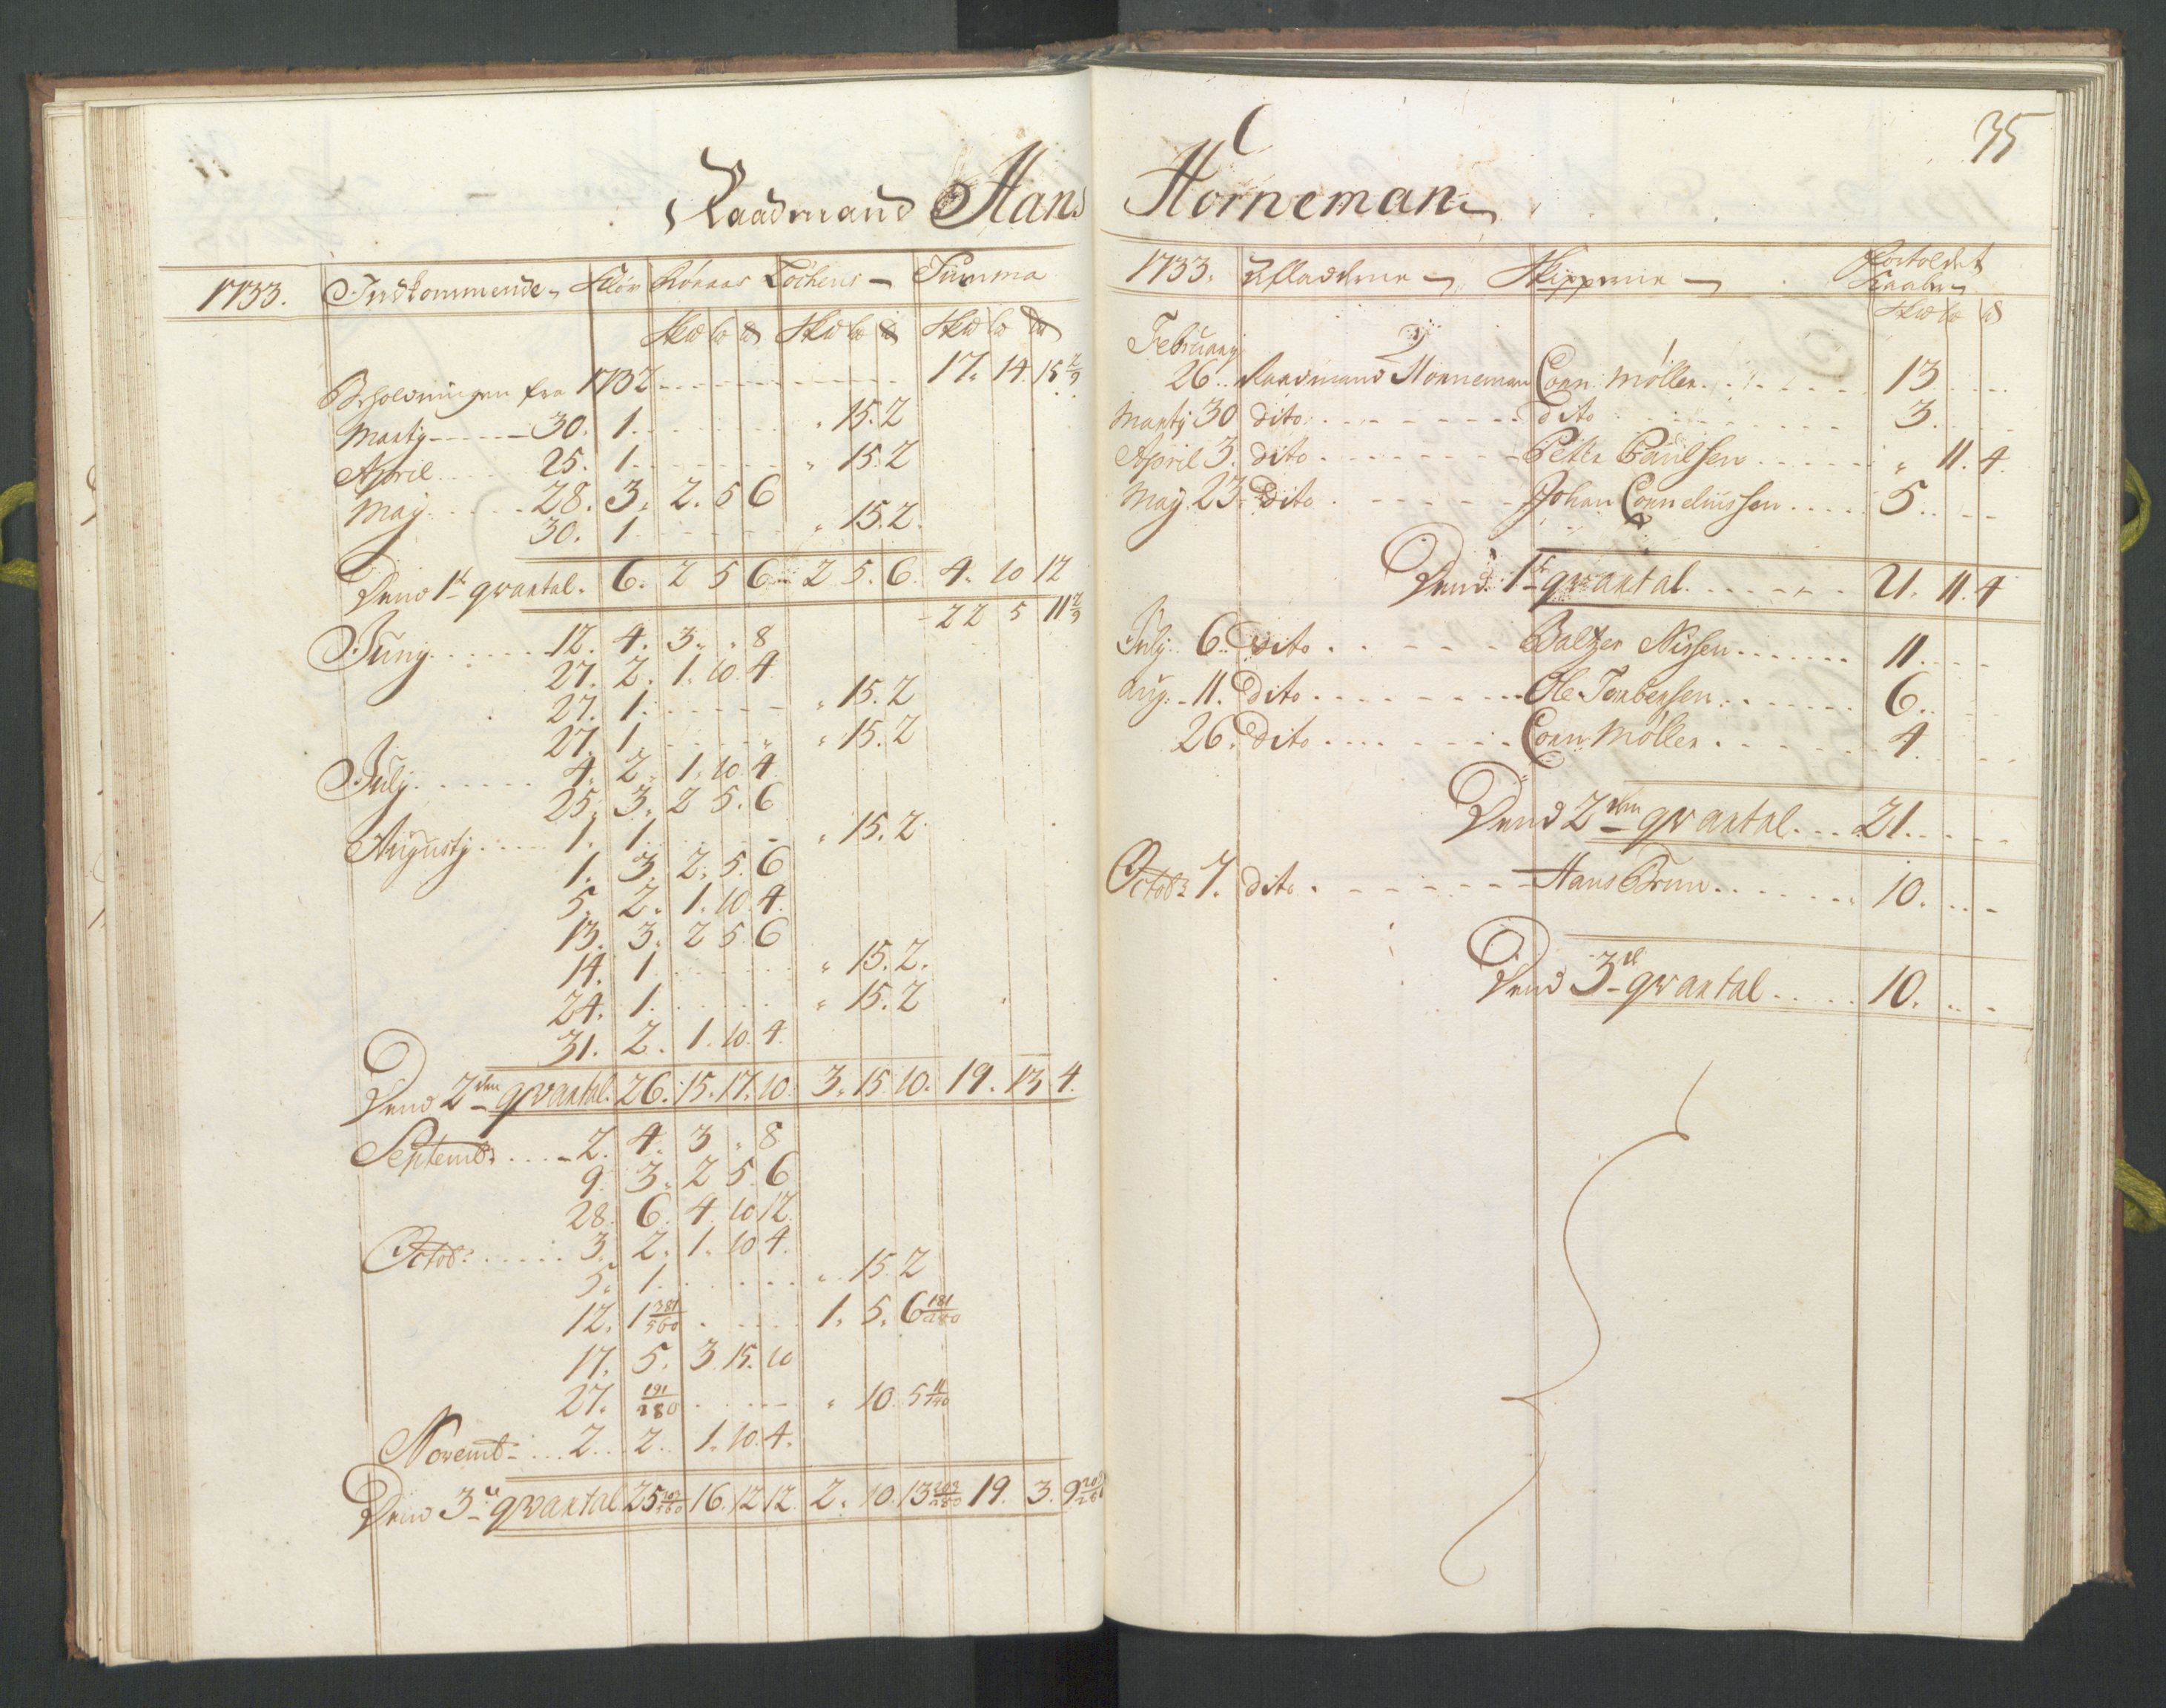 Raadmand Hans
1733. Indkommende Kløv Röraas Löchens Summa
Skd lb ℔ Skd lb ℔ Skd lb ℔
Beholdningen fra 1732 17. 14 15 2/9
Marty 30. 1. " 15. 2
April 25. 1. " 15. 2
May 28. 3. 2. 5 6
30. 1. " 15. 2.
Dend 1st qvartal. 6. 2 5 6 2 5. 6. 4. 10 12
22 5 11 2/9
Juny 12. 4. 3. " 8
27. 2. 1. 10. 4.
27. 1. " 15. 2
27. 1. " 15. 2
July 4. 2. 1. 10. 4.
25. 3. 2 5. 6
Augusty 1. 1. " 15. 2.
1. 3. 2. 5. 6
5. 2. 1. 10. 4.
13. 3. 2 5. 6
14. 1. " 15. 2.
24. 1. " 15. 2
31. 2. 1. 10. 4.
Dend 2den qvartal. 26. 15. 17. 10. 3. 15. 10. 19. 13 4.
Septembr 2. 4. 3 " 8
9. 3. 2 5. 6
28. 6. 4. 10 12.
Octob: 3. 2. 1. 10 4.
5. 1. " 15. 2
12. 1 381/560 1. 5. 6 181/280
17. 5. 3. 15. 10
27. 191/280 " 10. 5
Novemb: 2. 2. 1. 10. 4.
Dend 3de qvartal 25 16. 12 12. 2. 10. 13 203/280 19. 3. 9
35
Horneman
1733. Skipperne Fortoldet Kaaber
Skd lb ℔
February
26. Raadmand Horneman Corn: Møller 13
Marty 30 dito dito 3.
April 3. dito Petter Paulsen " 11. 4.
May 23. Dito Johan Corneliussen 5.
Dend 1st qvartal 21. 11. 4
July 6. dito Baltzer Nissen 11
Aug: 11. dito Ole Torbersen 6.
26. dito Corn Møller 4.
Dend 2den qvartal 21.
Octobr 7. dito Hans Brun 10.
Dend 3de qvartal 10.